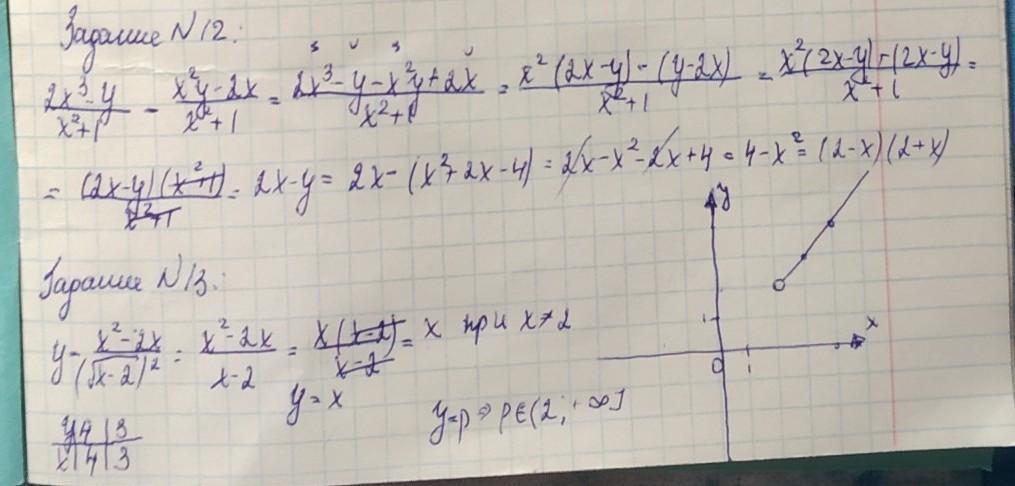 Задание N12:
(2x³-y)/(x²+1) - (x²y-2x)/(x²+1) = (2x³-y-x²y+2x)/(x²+1) = (x²(2x-y)-(y-2x))/(x²+1) = (x²(2x-y)+(2x-y))/(x²+1) =
= ((2x-y)(x²+1))/(x²+1) = 2x-y = 2x-(x²+2x-4) = 2x-x²-2x+4 = 4-x² = (2-x)(2+x)
y
Задание N13:
y = (x²-2x)/(√x-2)² = (x²-2x)/(x-2) = (x(x-2))/(x-2) = x при x≠2
1
x
0 1
y=x
y=p => p∈(2; +∞]
y|4|3
x|4|3